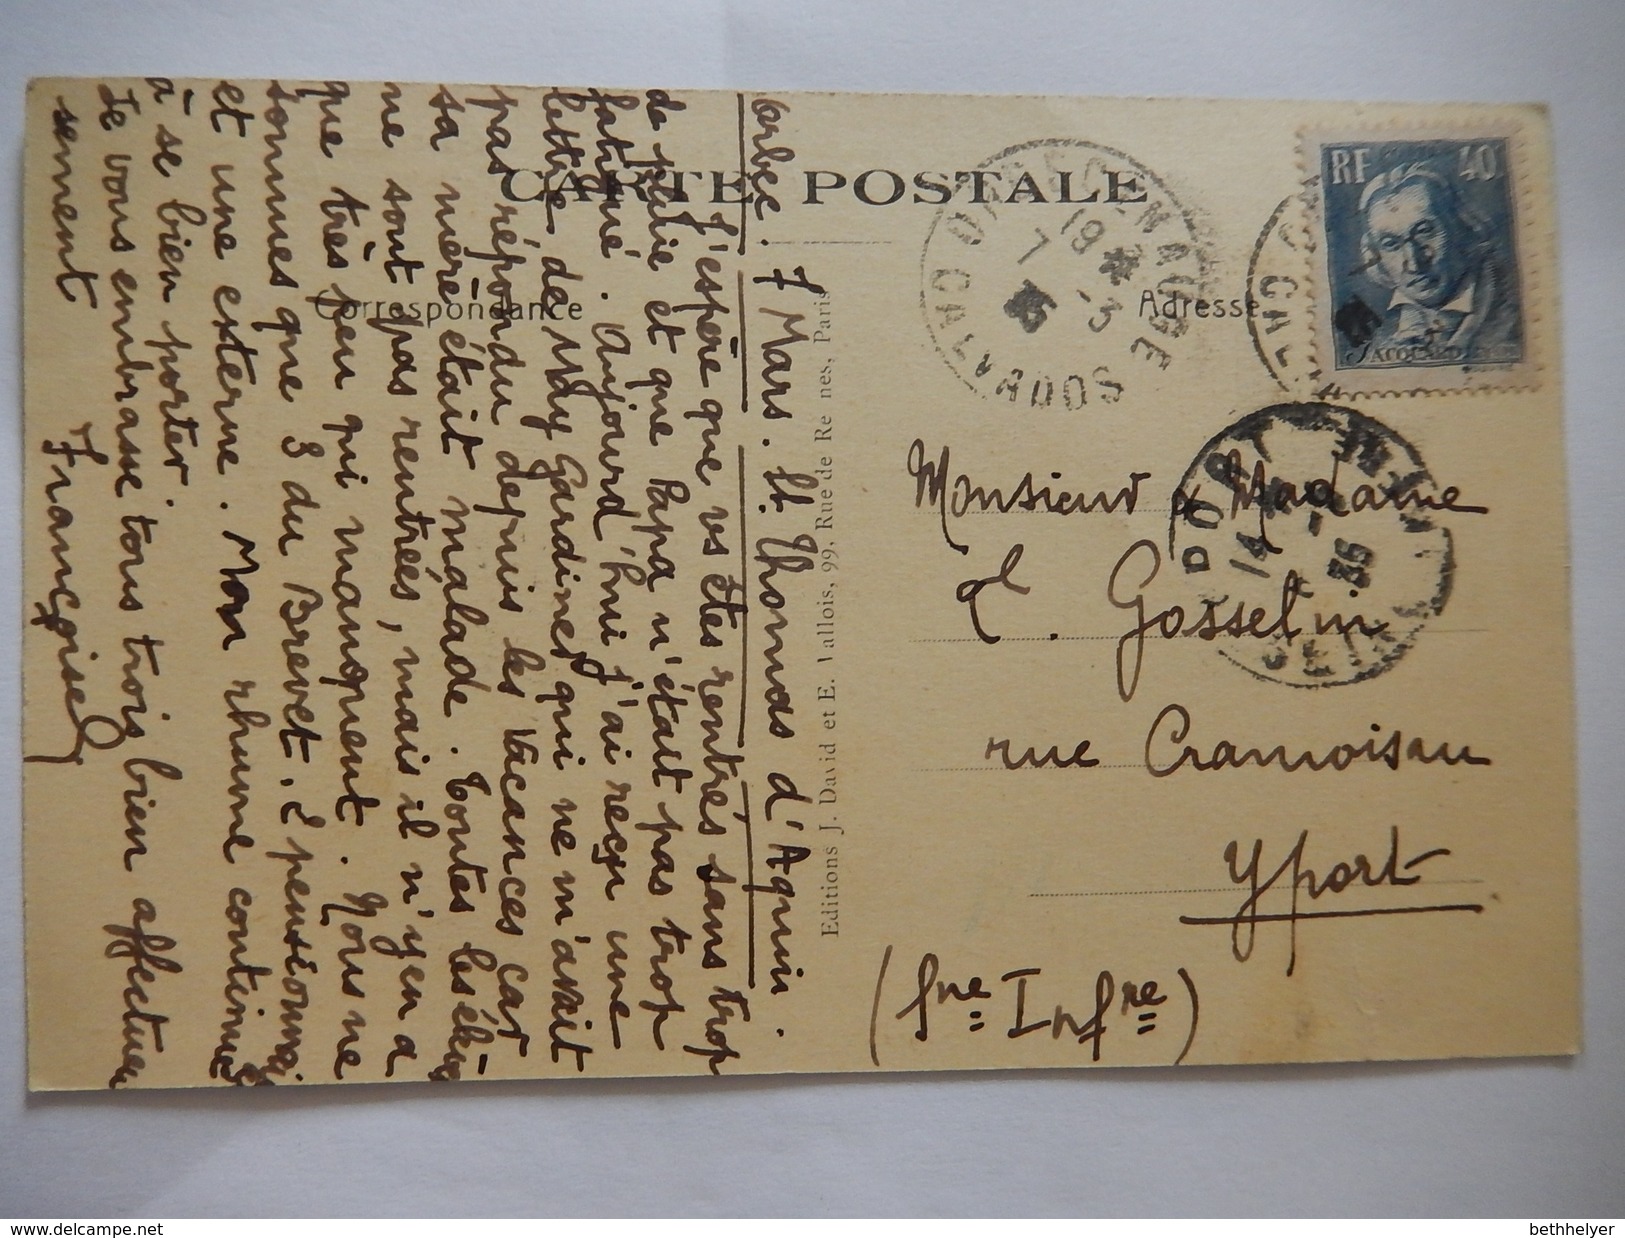 CARTE POSTALE
Correspondance
Adresse
RF 40c
JACQUARD
CALVADOS
19
7 -3
35
YPORT
14
35
Orbec. 7 Mars. St. Thomas d'Aquin.
J'espère que vs êtes rentrés sans trop
de pluie et que Papa n'était pas trop
fatigué. Aujourd'hui j'ai reçu une
lettre de May Gardiner qui ne m'avait
pas répondu depuis les Vacances car
sa mère était malade. Toutes les élèv
ne sont pas rentrées, mais il n'y en a
que très peu qui manquent. Nous ne
sommes que 3 du Brevet. 2 pensionnai
et une externe. Mon rhume continue
à se bien porter.
Je vous embrasse tous trois bien affectueu
sement
Françoise
Editions J. David et E. Vallois, 99, Rue de Rennes, Paris
Monsieur & Madame
L. Gosselin
rue Cramoisan
Yport
(Sne Infre)
bethhelyer